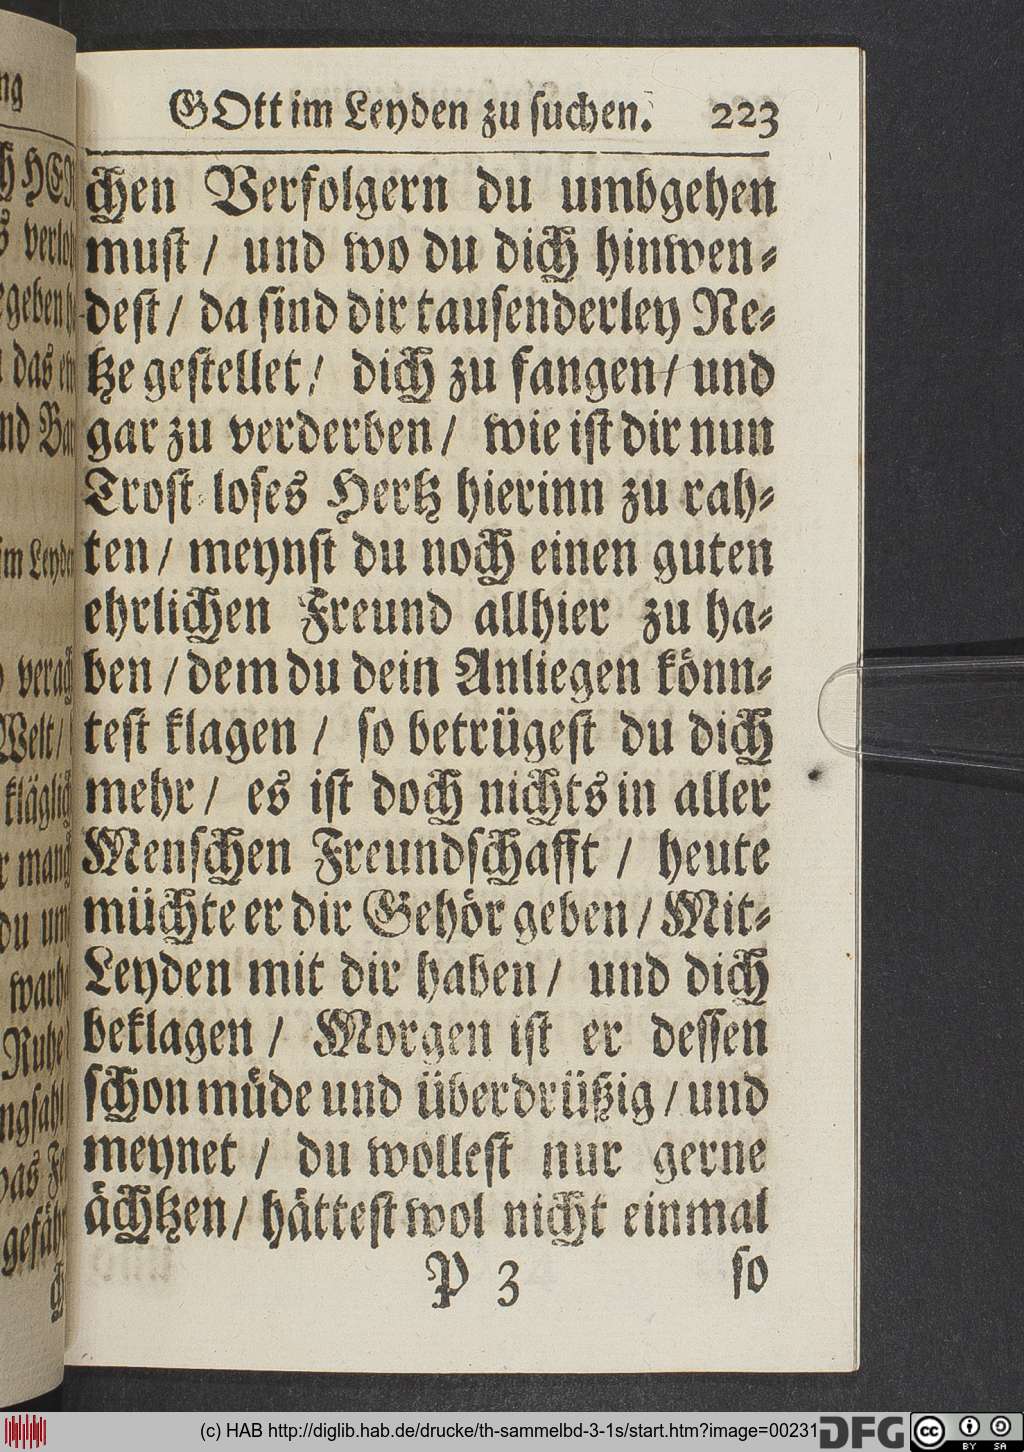 GOtt im Leyden zu suchen. 223
chen Verfolgern du umbgehen
must / und wo du dich hinwen-
dest / da sind dir tausenderley Ne-
tze gestellet / dich zu fangen / und
gar zu verderben / wie ist dir nun
Trost-loses Hertz hierinn zu rah-
ten / meynst du noch einen guten
ehrlichen Freund allhier zu ha-
ben / dem du dein Anliegen könn-
test klagen / so betrügest du dich
mehr / es ist doch nichts in aller
Menschen Freundschafft / heute
müchte er dir Gehör geben / Mit-
Leyden mit dir haben / und dich
beklagen / Morgen ist er dessen
schon müde und überdrüßig / und
meynet / du wollest nur gerne
ächtzen / hättest wol nicht einmal
P 3 so
(c) HAB http://diglib.hab.de/drucke/th-sammelbd-3-1s/start.htm?image=00231
DFG cc BY SA